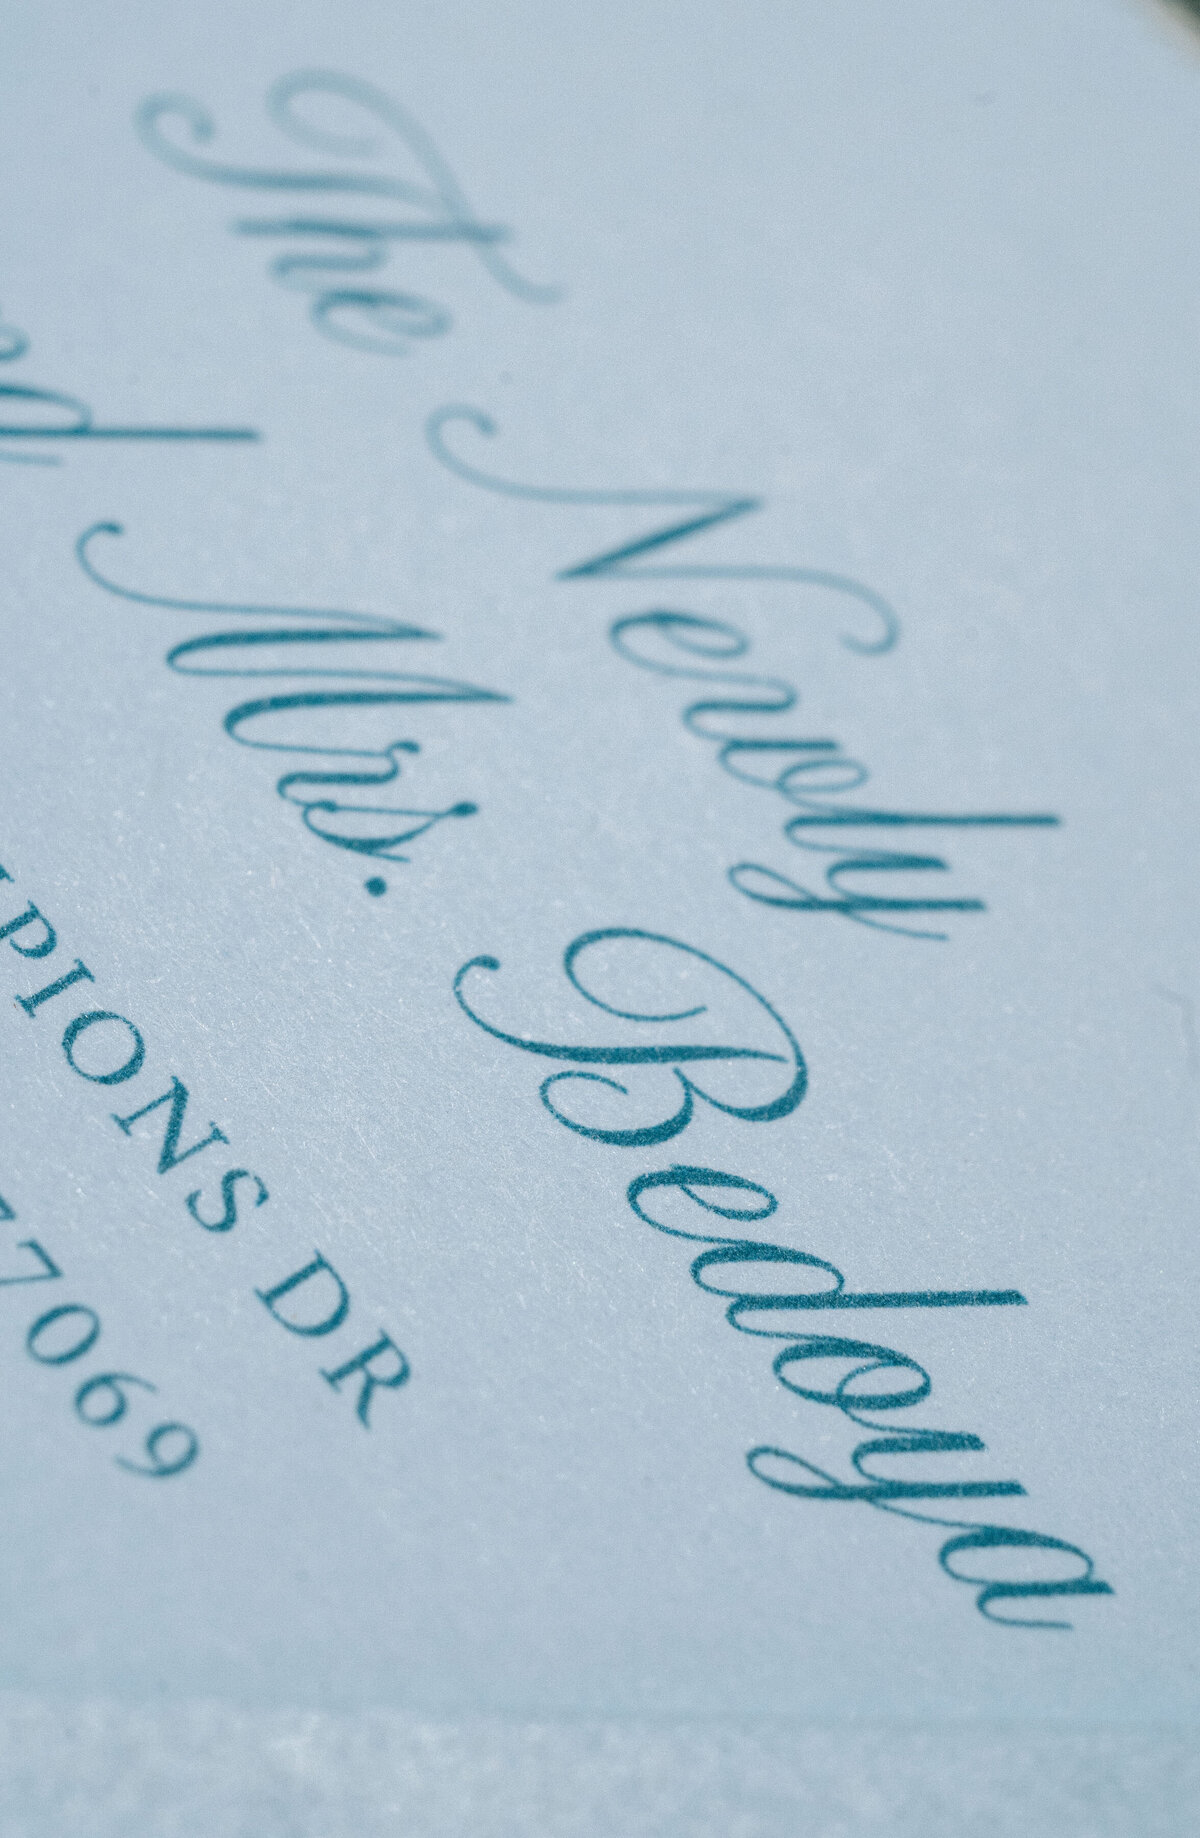 The Newly
ed Mrs. Bedoya
PIONS DR
77069